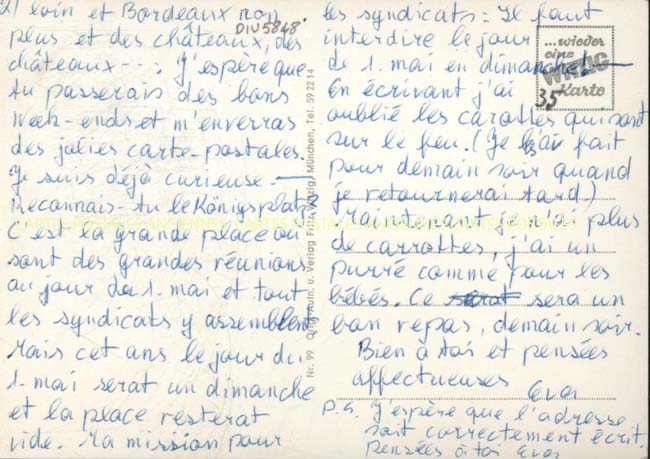 2) loin et Bordeaux non
plus et des châteaux, des
châteaux --- J'espère que
tu passerais des bons
week-ends et m'enverras
des jolies carte-postales.
Je suis déjà curieuse. —
Reconnais-tu le Königsplatz
C'est la grande place où
sont des grandes réunions
au jour du 1. mai et tout
les syndicats y assemblent
Mais cet ans le jour du
1. mai serat un dimanche
et la place resterat
vide. Ma mission pour
DIV5848
Nr. 99 Orig.-Aufn. u. Verlag Fritz Witzig, München, Tel: 59 22 14
les syndicats: Il faut
interdire le jour
de 1. mai en dimanche! —
En écrivant j'ai
oublié les carottes qui sont
sur le feu. (Je les ai fait
pour demain soir quand
je retournerai tard.)
Maintenant je n'ai plus
de carrottes, j'ai un
purré comme pour les
bébés. Ce sera un
bon repas, demain soir.
Bien à toi et pensées
affectueuses
Eva
P.S. J'espère que l'adresse
soit correctement écrit.
pensées à toi Eva
...wieder
eine
WITZIG
Karte
3,5